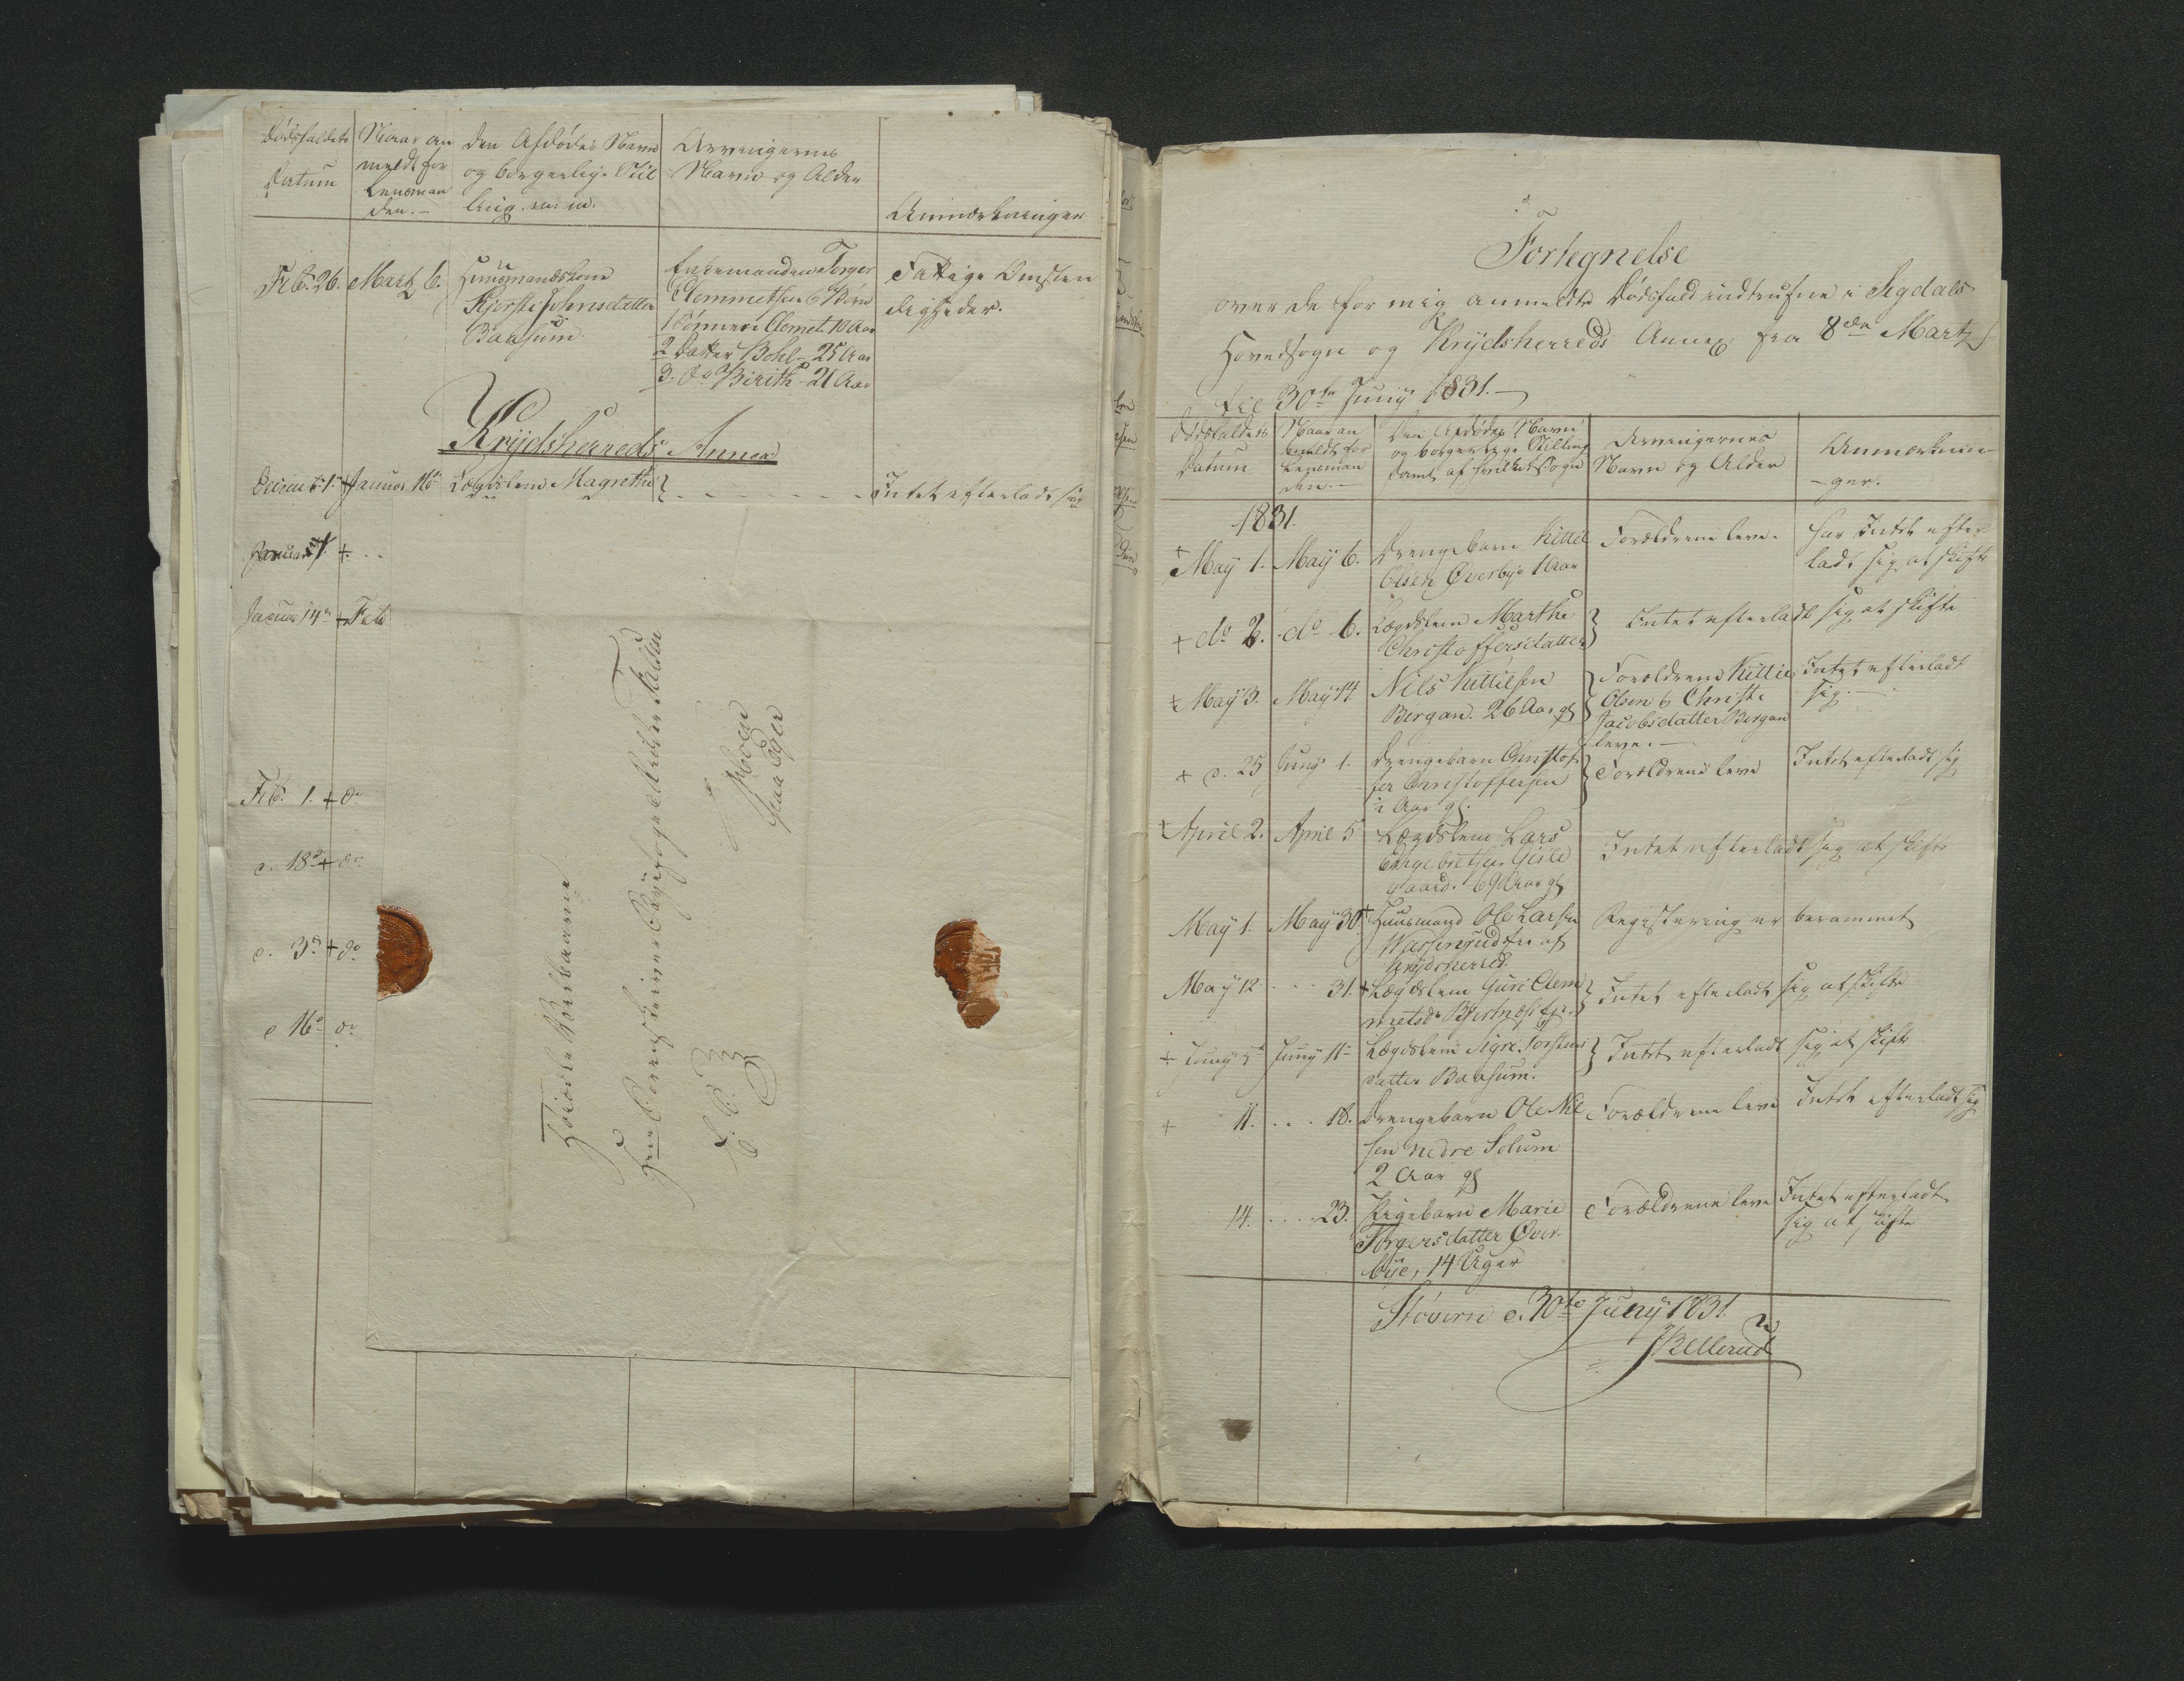 Dødsfaldets
Datum
Naar an
meldt for
Lensman
den.-
Den Afdødes Navn
og borgerlige Stil
ling. m: m:
Arvingernes
Navn og Alder
Anmærkninger
Feb. 26. Martz 6.
Huusmandskone
Kjersti Johnsdatter
Baasum
Enkemanden Torger
Clemmetsen 6 Børn
1 Sønnen Clemet 10 Aar
2 Datter Bohl - 25 Aar
3. do Birith - 21 Aar
Fattige Omsten
digheder.
Krydsherreds Annex
Januar 16 Lægdslem Magrethe } - - - - - - - Intet efterladt sig
Januar
Januar 14 + Feb
Feb. 1. + do
d. 18 + do
d. 3 + do
d 16 do
Høiædle Velbaarne
Herr Sorenskriver
Moen
paa Eger
Fortegnelse
over de for mig anmeldte Dødsfald indtrufne i Sigdals
Hovedsogn og Krydsherreds Annex fra 8de Martz
til 30te Juny 1831.-
Dødsfaldets
Datum
Naar an
meldt for
Lensman
den.-
Den Afdødes Navn
og borgerlige Stilling
samt af hvilket Sogn
Arvingernes
Navn og Alder
Anmærknin-
-ger.
1831.
+ May 1. May 6. Drengebarn Kittil
Olsen Øverbye 1 Aar
Forældrene leve.
har Intet efter
ladt sig at skifte
+ do 2. do 6. Lægdslem Marthe
Christoffersdatter
} Intet efterladt sig at skifte
+ May 3. May 14 Nils Kittilsen
Bergan. 26 Aar gl
Forældrene Kittil
Olsen & Christi
Jacobsdatter Bergan
leve.-
Intet efterladt
sig.-
+ d. 25 Juny 1. Drengebarn Christof
fer Christoffersen
2 Aar gl.
} Forældrene leve
Intet efterladt sig
+ April 2. April 5 Lægdslem Lars
Engebrethsen Gisle
gaard. 69 Aar gl
Intet efterladt sig at skifte
May 1. May 30. + Huusmand Ole Larsen
fra af
Krydsherred.
Registrering er berammet
May 12 - - 31. + Lægdslem Guri Clem
metsdr
} Intet efterladt sig at skifte
+ Juny 5 Juny 11 Lægdslem Sigri Torstens
datter Baasum.
} Intet efterladt sig at skifte
+ 11. . . . 18. Drengebarn Ole Nil
sen nedre Solum
2 Aar gl
Forældrene leve
Intet efterladt sig
14. . . . . 23. Pigebarn Marie
Torgersdatter Øver-
bye, 14 Uger
Forældrene leve
Intet efterladt
sig at skifte
Støvern d. 30te Juny 1831.
Bellerud